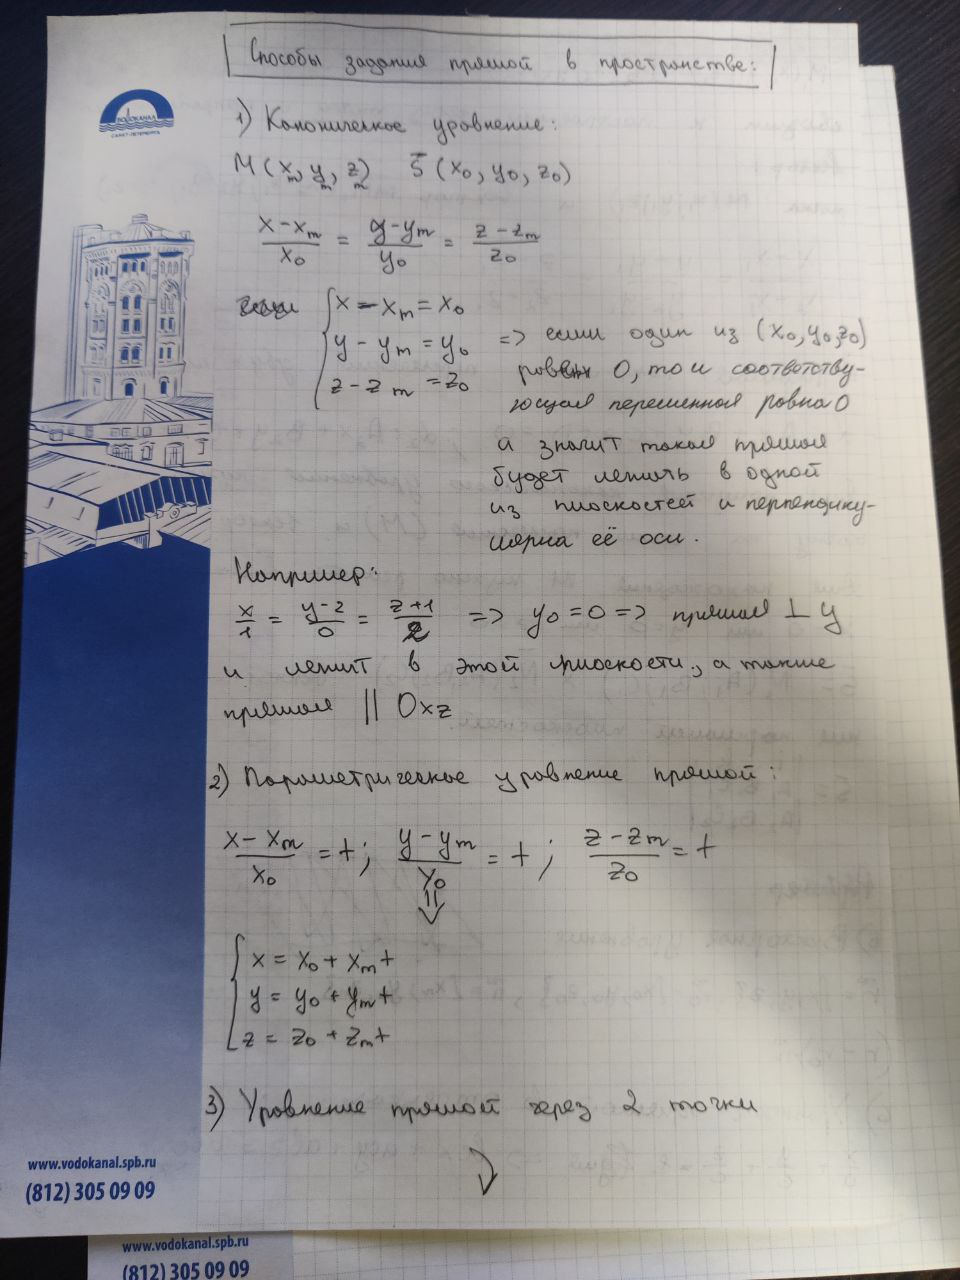 Способы задания прямой в пространстве:
ВОДОКАНАЛ
САНКТ-ПЕТЕРБУРГ
1) Каноническое уровнение:
M (x_m, y_m, z_m) S̄ (x₀, y₀, z₀)
(x - x_m)/x₀ = (y - y_m)/y₀ = (z - z_m)/z₀
{ x - x_m = x₀
y - y_m = y₀ => если один из (x₀, y₀, z₀)
z - z_m = z₀ ровен 0, то и соответству-
ющая переменная ровна 0
а значит такая прямая
будет лежать в одной
из плоскостей и перпендику-
лярна её оси.
Например:
x/1 = (y-2)/0 = (z+1)/2 => y₀ = 0 => прямая ⊥ y
и лежит в этой плоскости, а также
прямая || Oxz
2) Параметрическое уровнение прямой:
(x - x_m)/x₀ = t; (y - y_m)/y₀ = t; (z - z_m)/z₀ = t
⇓
{ x = x₀ + x_m t
y = y₀ + y_m t
z = z₀ + z_m t
3) Уровнение прямой через 2 точки
www.vodokanal.spb.ru
(812) 305 09 09
www.vodokanal.spb.ru
(812) 305 09 09